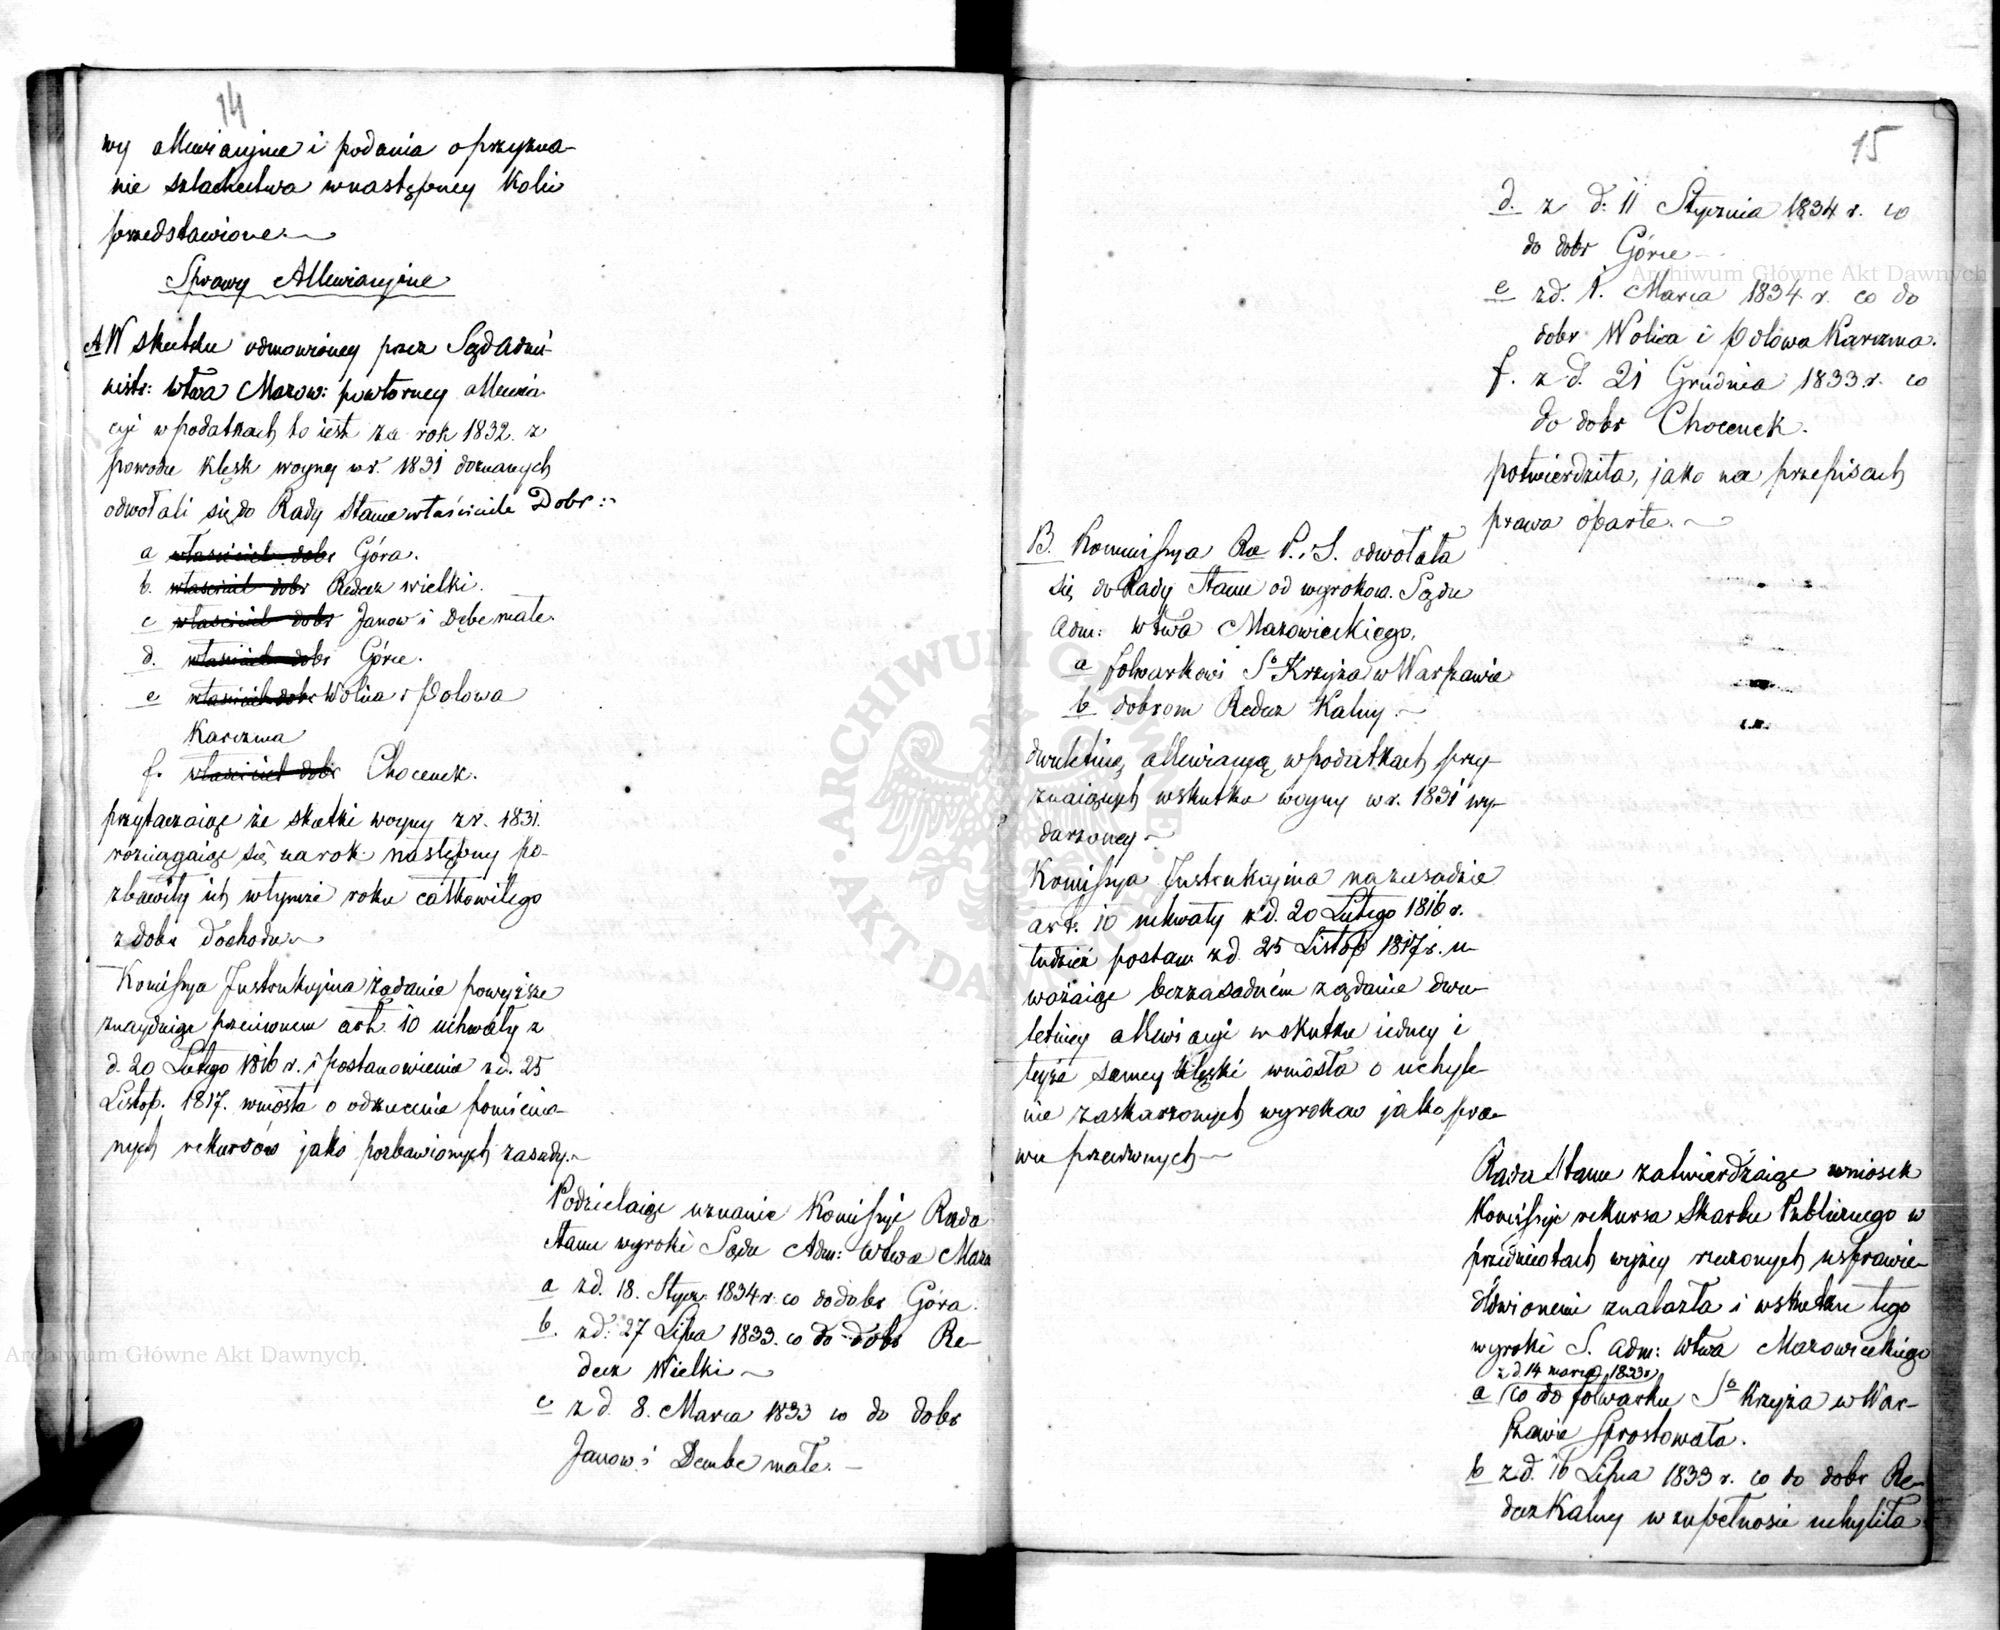 14
wy allewiacyjne i podania o przyzna-
nie szlachectwa w następney kolei
przedstawione.
Sprawy Allewiacyjne
A W skutku odmowioney przez Sąd Admi-
nistr: Wtwa Mazow: powtorney allewia-
cyi w podatkach to iest za rok 1832. z
powodu klęsk woyny w r. 1831 doznanych
odwołali się do Rady Stanu właściciele Dobr:
a właściciel dobr Góra.
b. właściciel dobr Redecz wielki.
c właściciel dobr Janow i Dębe małe.
d. właściciel dobr Górce.
e właściciel dobr Wolica i Polowa
Karczma
f. właściciel dobr Chocenek.
przytaczaiąc że skutki woyny z r. 1831.
rozciągaiąc się na rok następny po-
zbawiły ich w tymże roku całkowitego
z dobr dochodu
Komissya Instrukcyjna żądanie powyższe
znayduiąc przeciwnem art. 10 uchwały z
d. 20 Lutego 1816 r. i postanowienia z d. 25
Listop. 1817. wniosła o odrzucenie pomienio-
nych rekursów jako pozbawionych zasady.
Podzielaiąc uznanie Komissyi Rada
Stanu wyroki Sądu Adm: Wtwa Mazo
a z d. 18. Stycz: 1834 r. co do dobr Góra.
b. z d. 27 Lipca 1833. co do dobr Re-
decz Wielki
c z d. 8. Marca 1833 co do dobr
Janow i Dembe małe.
15
d. z d. 11 Stycznia 1834 r. co
do dobr Górce
e z d. 1. Marca 1834 r. co do
dobr Wolica i Polowa Karczma.
f. z d. 21 Grudnia 1833 r. co
do dobr Chocenek.
potwierdziła, jako na przepisach
prawa oparte.
B. Kommissya Rza P. i S. odwołała
się do Rady Stanu od wyrokow. Sądu
Adm: Wtwa Mazowieckiego.
a folwarkowi So Krzyża w Warszawie
b dobrom Redecz Kalny.
dwuletnią allewiacyą w podatkach przy-
znaiących w skutku woyny w r. 1831 wy-
darzoney
Komissya Instrukcyjna na zasadzie
art. 10 uchwały z d. 20 Lutego 1816 r.
tudzież postan z d. 25 Listop 1817 r. u-
ważaiąc bezzasadnem żądanie dwu-
letniey allewiacyi w skutku iedney i
teyże samey klęski wniosła o uchyle-
nie zaskarżonych wyrokow jako pra-
wu przeciwnych
Rada Stanu zatwierdzaiąc wniosek
Komissyi rekursa Skarbu Publicznego w
przedmiotach wyżey rzeczonych usprawie-
dliwionemi znalazła i w skutku tego
wyroki S. Adm: Wtwa Mazowieckiego
z d. 14 marca 1833 r
a co do folwarku So Krzyża w War-
szawie sprostowała.
b z d. 16 Lipca 1833 r. co do dobr Re-
decz Kalny w zupełności uchyliła
Archiwum Główne Akt Dawnych
Archiwum Główne Akt Dawnych
ARCHIWUM GŁÓWNE AKT DAWNYCH